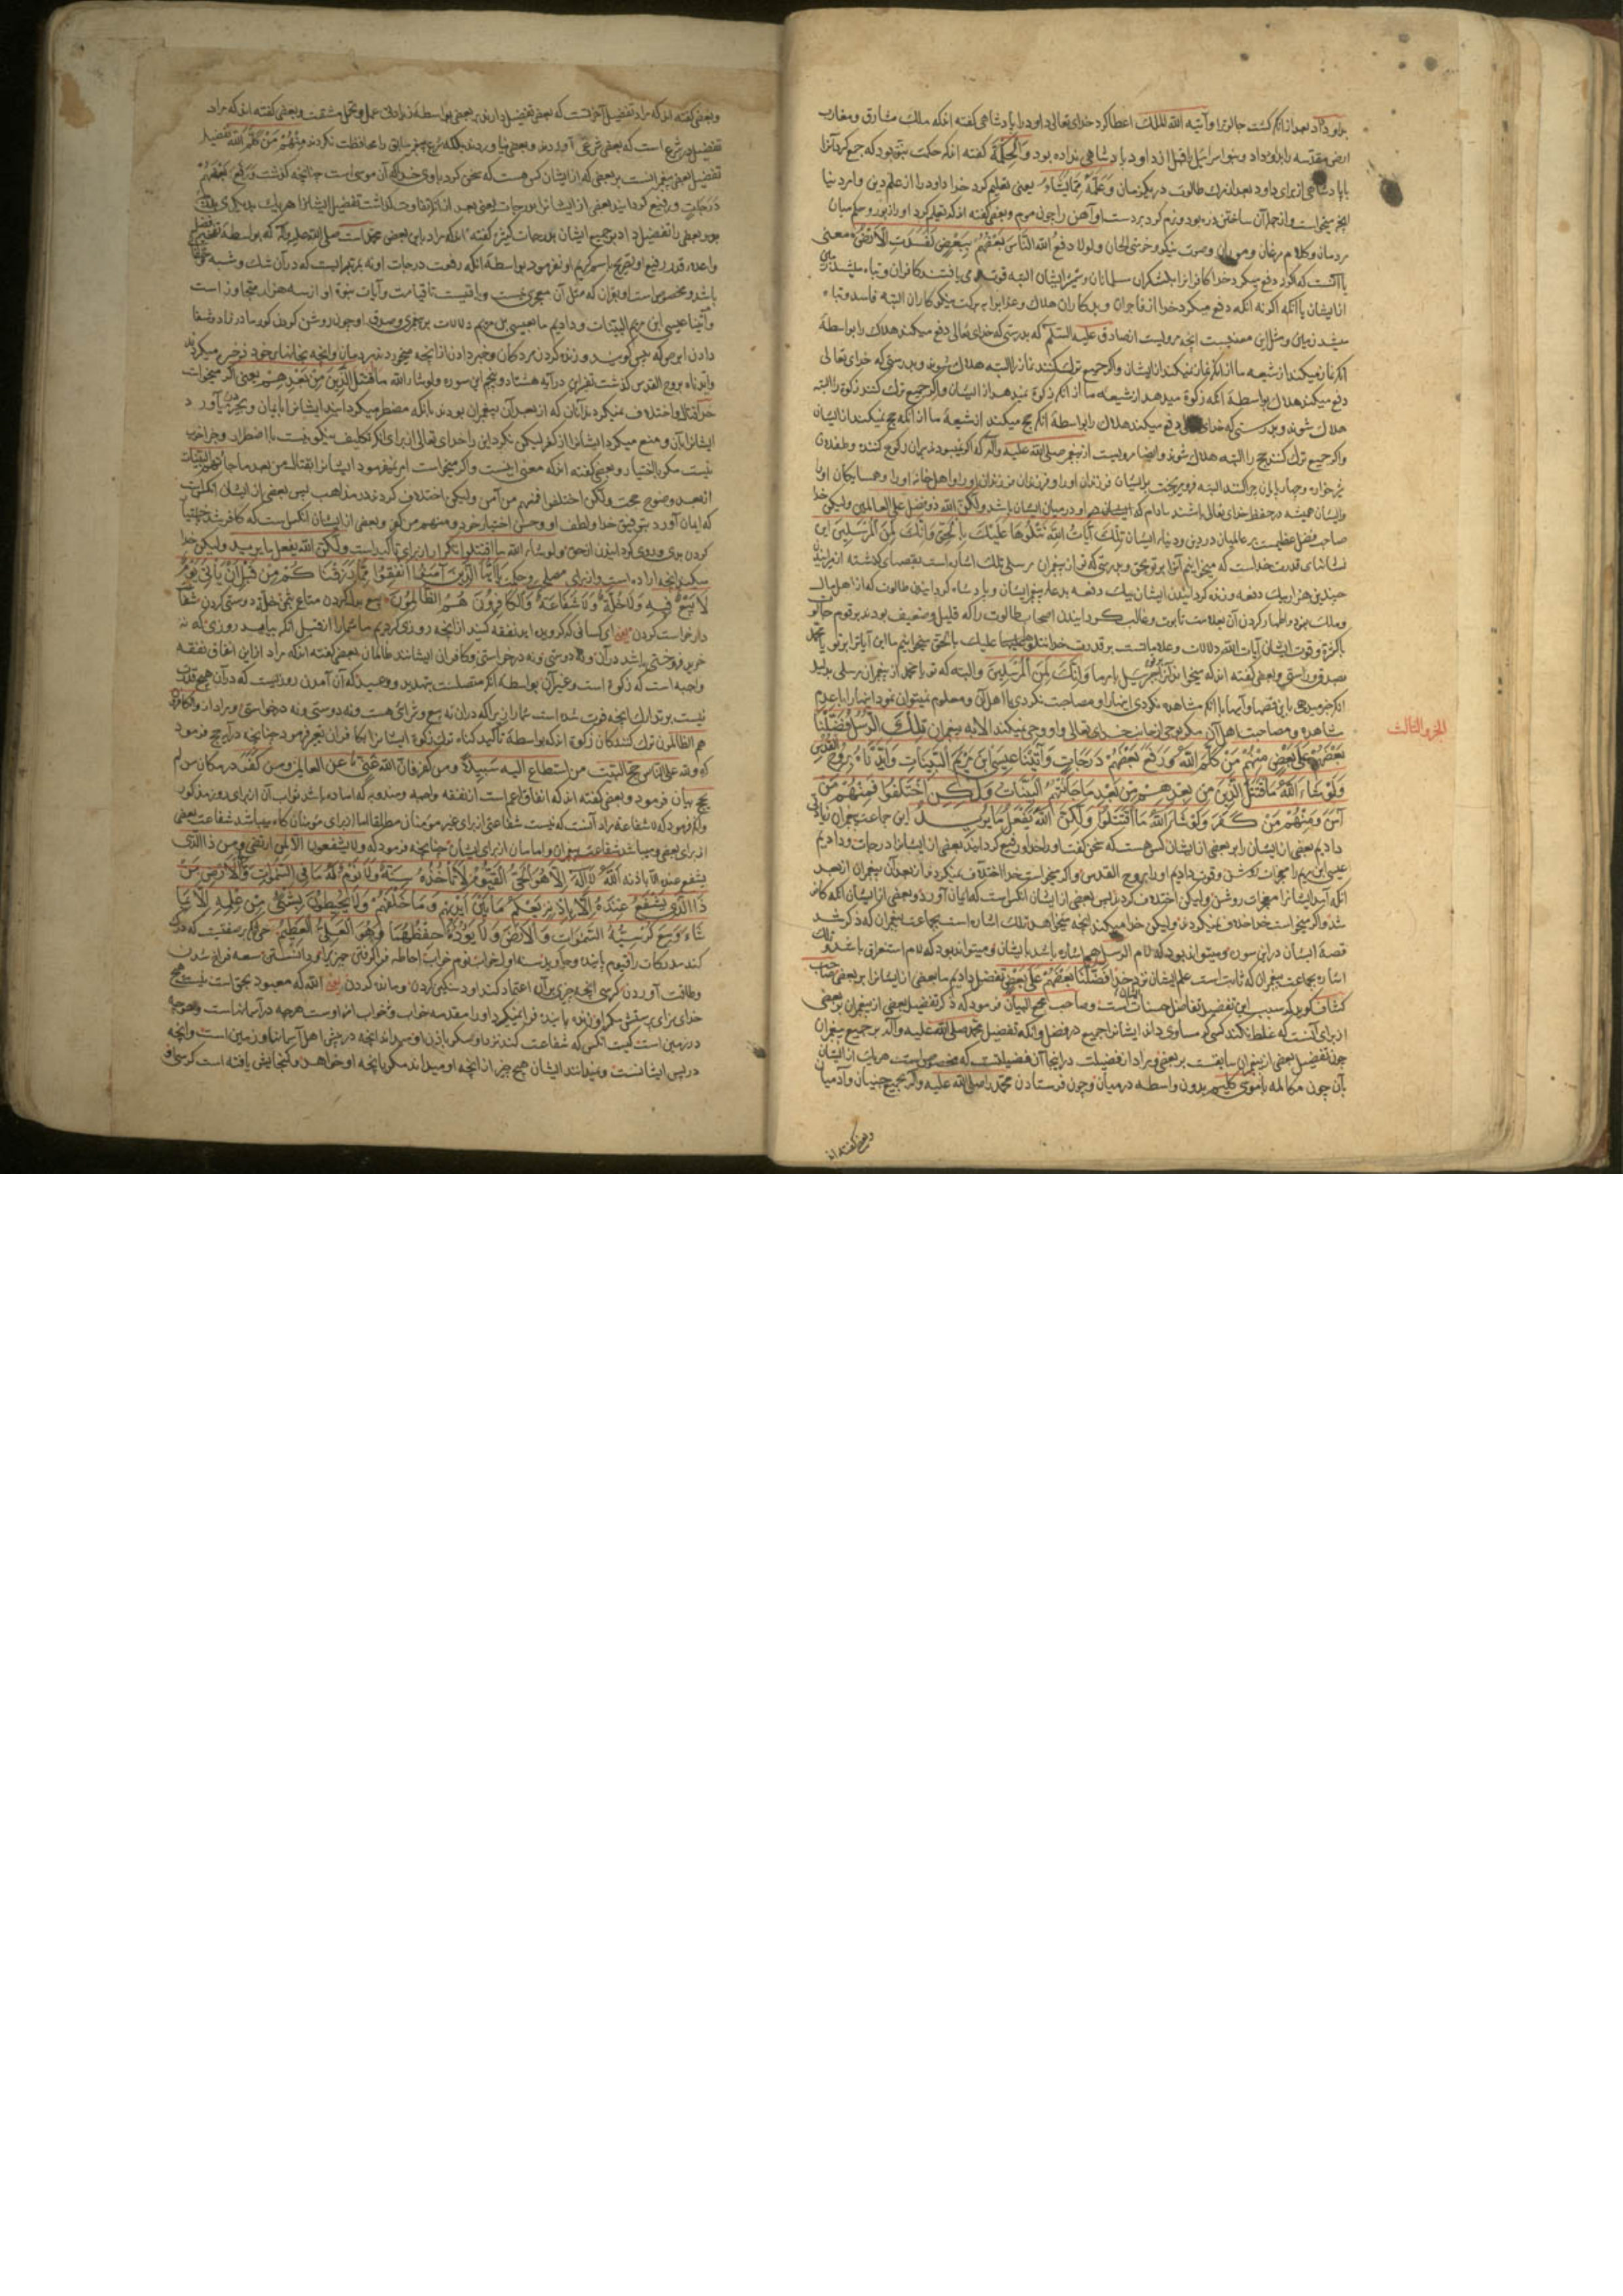 براو داد بعد از آنکه کشت جالوترا وآتیه الله الملک اعطا کرد خدای تعالی داود را پادشاهی گفته اند که ملک مشارق و مغارب
ارض مقدسه را بداود داد و بنو اسرائیل قبل از داود پادشاهی نداده بود والحکمة گفته اند که حکمت نبوّت بود که جمع کرد آنرا
با پادشاهی از برای داود بعد از مرک طالوت در یکزمان وَعَلَّمَهُ مِمَّا یَشَاءُ یعنی تعلیم کرد خدا داود را از علم دین و امر دنیا
انچه میخواست و از جمله آن ساختن زره بود و نرم کرد بر دست او آهن را چون موم و بعضی گفته اند که تعلیم کرد او را زبور و حکم میان
مردمان و کلام مرغان و موران و صوت نیکو و خوشی الحان ولولا دفعُ الله النَّاسَ بَعْضَهُمْ بِبَعْضٍ لَفَسَدَتِ الْاَرْضُ معنی
یا آنست که اگر دفع میکرد خدا کافرانرا بلشکران مسلمانان البته قوت می یافتند کافران و تباه میشد زمین
از ایشان یا آنکه اگر نه آنکه دفع میکرد خدا از فاجران و بدکاران هلاک و عذابرا ببرکت نیکوکاران البته فاسد و تباه
میشد زمین و مثل این معنیست انچه مرویست از صادق علیه السّلم که بدرستی که خدای تعالی دفع میکند هلاک را بواسطهٔ
آنکه نماز میکند از شیعه ما از آنکه نماز نمیکند از ایشان واگر جمیع ترک کنند نماز را البته هلاک شوند و بدرستی که خدای تعالی
دفع میکند هلاک بواسطهٔ آنکه زکوة میدهد از شیعهٔ ما از آنکه زکوة نمیدهد از ایشان واگر جمیع ترک کنند زکوة را البته
هلاک شوند و بدرستی که خدای دفع میکند هلاک را بواسطهٔ آنکه حج میکند از شیعهٔ ما از آنکه حج نمیکند از ایشان
واگر جمیع ترک کنند حج را البته هلاک شوند و ایضا مرویست از پیغمبر صلی الله علیه وآله که اگر نمیبودند بندکان رکوع کننده و طفلان
شیرخواره و چهارپایان چراکننده البته فرو میریخت بر ایشان فرزندان او را و فرزندان فرزندان او را و اهل خانه او را و همسایکان او را
و ایشان همیشه در حفظ خدای تعالی باشند مادام که او در میان ایشان باشد ولکنّ الله ذو فضل علی العالمین ولیکن خدا
صاحب فضل عظیمست بر عالمیان در دین و دنیا ایشان تِلْكَ آیَاتُ اللهِ نَتْلُوهَا عَلَیْكَ بِالْحَقِّ وَاِنَّكَ لَمِنَ الْمُرْسَلِینَ این
نشانهای قدرت خداست که میخوانیم آنرا بر تو بحق و بدرستی که تو از پیغمبران مرسلی تلک اشاره است بقصهای گذشته از میرانیدن
چندین هزار بیک دفعه و زنده گردانیدن ایشان بیک دفعه بدعای پیغمبر ایشان و پادشاه گردانیدن طالوت که از اهل
وملک نبود و ظاهر کردن آن بعلامت تابوت و غالب گردانیدن اصحاب طالوت را که قلیل و ضعیف بودند بر قوم جالوت
با کثرة و قوت ایشان آیات الله دلالات و علاماتست بر قدرت خدا نتلوها علیک بالحق میخوانیم ما این آیاترا بر تو یا محمد
بصدق و راستی وبعضی گفته اند که میخواند آنرا جبرئیل بامر ما وَاِنَّكَ لَمِنَ الْمُرْسَلِینَ والبته که تو یا محمد از پیغمبران مرسلی بدلیل
آنکه خبر میدهی باین قصها و آیتها با آنکه مشاهده نکردی انبیا را و مصاحبت نکردی با اهل آن و معلوم نمیتوان نمود انبیا را با عدم
مشاهده و مصاحبت اهل آن مگر بوحی از جانب خدای تعالی و او وحی نمیکند الا به پیغمبران تِلْكَ الرُّسُلُ فَضَّلْنَا
الجزو الثالث
بَعْضَهُمْ عَلَی بَعْضٍ مِنْهُمْ مَنْ كَلَّمَ اللّٰهُ وَرَفَعَ بَعْضَهُمْ دَرَجَاتٍ وَآتَیْنَا عِیسَی ابْنَ مَرْیَمَ الْبَیِّنَاتِ وَاَیَّدْنَاهُ بِرُوحِ الْقُدُسِ
وَلَوْ شَاءَ اللّٰهُ مَا اقْتَتَلَ الَّذِینَ مِنْ بَعْدِهِمْ مِنْ بَعْدِ مَا جَاءَتْهُمُ الْبَیِّنَاتُ وَلٰكِنِ اخْتَلَفُوا فَمِنْهُمْ مَنْ
آمَنَ وَمِنْهُمْ مَنْ كَفَرَ وَلَوْ شَاءَ اللّٰهُ مَا اقْتَتَلُوا وَلٰكِنَّ اللّٰهَ یَفْعَلُ مَا یُرِیدُ این جماعت پیغمبران زیادتی
دادیم بعضی از ایشان را بر بعضی از ایشان کس هست که سخن گفت او را خدا و رفیع گردانید بعضی از ایشانرا درجات و دادیم
عیسی ابن مریم را معجزات روشن و قوت دادیم او را بروح القدس واگر میخواست خدا اختلاف نمیکردند از بعد آن پیغمبران از بعد
آنکه آمد ایشانرا معجزات روشن ولیکن اختلاف کردند پس بعضی از ایشان آنکس است که ایمان آورد و بعضی از ایشان آنکه کافر
شد واگر میخواست خدا خلاف نمیکردند ولیکن خدا میکند انچه میخواهد تلک اشاره است بجماعت پیغمبران که ذکر شد
قصهٔ ایشان در این سوره و میتواند بود که لام الرسل اشاره باشد بایشان و میتواند بود که لام استغراق باشد و تلک
اشاره بجماعت پیغمبران که ثابت است علم ایشان نزد خدا فَضَّلْنَا بَعْضَهُمْ عَلَی بَعْضٍ تفضیل دادیم ما بعضی از ایشانرا بر بعضی صاحب
کشاف گوید که سبب این تفضیل تفاضل حسناتست و صاحب مجمع البیان فرمود که ذکر تفضیل بعضی از پیغمبران بر بعضی
از برای آنست که غلط نکند کسی که مساوی داند ایشانرا جمیع در فضل و آنکه تفضیل محمد صلی الله علیه وآله بر جمیع پیغمبران
چون تفضیل بعضی از پیغمبران سابقست بر بعضی و مراد از فضیلت در اینجا آن فضیلتست که مخصوص است هر یک از ایشان
بآن چون مکالمه با موسی کلیم بدون واسطه در میان و چون فرستادن محمد را صلی الله علیه وآله بجمیع جنیان و آدمیان
وبعضی گفته اند
وبعضی گفته اند که مراد تفضیل آخرتست که بعضی تفضیل دارند بر بعضی بواسطهٔ زیادتی عمل و تحمل مشقت و بعضی گفته اند که مراد
تفضیل در شرع است که بعضی شرعی آوردند و بعضی نیاوردند بلکه شرع پیغمبر سابق را محافظت نکردند مِنْهُمْ مَنْ كَلَّمَ اللهُ تفضیل
تفضیل بعضی پیغمبرانست بر بعضی که از ایشان کس هست که سخن کرد با وی خدا که آن موسی است چنانچه گذشت وَرَفَعَ بَعْضَهُمْ
دَرَجَاتٍ و رفیع گردانید بعضی از ایشانرا بدرجات یعنی بعد از آنکه تفاوت گذاشت تفضیل ایشانرا هر یک بدیگری
بود بعضی را تفضیل داد بر جمیع ایشان بدرجات کثیر گفته اند که مراد باین بعضی محمد است صلی الله علیه وآله که بواسطهٔ
واعلاء قدر رفیع او تصریح باسم کریم او نفرمود بواسطهٔ آنکه رفعت درجات او نه بمرتبه ایست که در آن شک و شبه
باشد و مخصوص است او بقرآن که مثل آن معجزی نیست و باقیست تا قیامت و آیات نبوة او از سه هزار متجاوز است
وآتَینا عیسی ابن مریم البیّنات و دادیم ما بعیسی بن مریم دلالات بر پیغمبری و صدق او چون روشن کردن کور مادرزاد و شفا
دادن ابرص که پیس گویند و زنده کردن مردکان و خبر دادن از انچه میخوردند مردمان و انچه بخانهاء خود ذخیره میکردند
وایدناه بروح القدس گذشت تفسیر این در آیه هشتاد و پنجم این سوره ولو شاء الله ما اقتتل الَّذِینَ مِنْ بَعْدِهِمْ یعنی اگر میخواست
خدا قتال و اختلاف نمیکردند آنان که از بعد آن پیغمبران بودند بانکه مضطر میکردانید ایشانرا بایمان
ایشانرا بآن و منع میکرد ایشانرا از کفر لیکن نکرد این را خدای تعالی از برای آنکه تکلیف نیکو نیست با اضطرار و جزا خوب
نیست مگر باختیار وبعضی گفته اند که معنی اینست واگر میخواست امر نمیفرمود ایشانرا بقتال من بعد ما جاءتهم البیّنات
از بعد وضوح حجت ولکن اختلفوا فمنهم من آمن ولیکن اختلاف کردند در مذاهب پس بعضی از ایشان آنکس است
که ایمان آورد بتوفیق خدا و لطف او و حسن اختیار خود ومنهم من کفر وبعضی از ایشان آنکس است که کافر شد
کردن بدی و روی گردانیدن از حق ولو شاء الله ما اقتتلوا تکرار از برای تأکید است ولکنّ الله یفعل ما یرید ولیکن خدا
میکند انچه اراده است و از برای مصلحت و حکمت یَا اَیُّهَا الَّذِینَ آمَنُوا اَنْفِقُوا مِمَّا رَزَقْنَاكُمْ مِنْ قَبْلِ اَنْ یَأْتِیَ یَوْمٌ
لَا بَیْعٌ فِیهِ وَلَا خُلَّةٌ وَلَا شَفَاعَةٌ وَالْكَافِرُونَ هُمُ الظَّالِمُونَ بیع بدل کردن متاع بثمن خلّة دوستی کردن شفاعة
درخواست کردن یعنی ای کسانی که گرویده اید نفقه کنید از انچه روزی کردیم ما شما را از قبل آنکه بیاید روزی که نه
خرید فروختنی باشد در آن و نه دوستی و نه درخواستی و کافران ایشانند ظالمان بعضی گفته اند که مراد از این انفاق نفقه
واجبه است که زکوة است و غیر آن بواسطهٔ آنکه متصلست بتهدید و وعید که آن آمدن روزیست که در آن هیچ قدرت
نیست بر تدارک انچه فوت شده است شما را زیرا که در آن نه بیع و شرای هست و نه دوستی و نه درخواستی و مراد از والکافرون
هم الظالمون ترک کنندکان زکوة اند که بواسطهٔ تأکید گناه ترک زکوة ایشانرا بکافران تعبیر فرمود چنانچه در آیه حج فرمود
که ولله علی الناس حج البیت من استطاع الیه سبیلا ومن کفر فانّ الله غنیّ عن العالمین ومن کفر در مکان من لم
یحج بیان فرمود وبعضی گفته اند که انفاق اعم است از نفقه واجبه و مندوبه که اساده باشد ثواب آن از برای روز مذکور
وآنکه فرمود که لا شفاعة مراد آنست که نیست شفاعتی از برای غیر مؤمنان مطلقا اما از برای مؤمنان گاه میباشد شفاعت بعضی
از برای بعضی و میباشد شفاعت پیغمبران و امامان از برای ایشان چنانچه فرمود که ولا یشفعون الا لمن ارتضی ومن ذا الذی
یشفع عنده الا باذنه اَللّٰهُ لَا اِلٰهَ اِلَّا هُوَ الْحَیُّ الْقَیُّومُ لَا تَأْخُذُهُ سِنَةٌ وَلَا نَوْمٌ لَهُ مَا فِی السَّمٰوَاتِ وَمَا فِی الْاَرْضِ مَنْ
ذَا الَّذِی یَشْفَعُ عِنْدَهُ اِلَّا بِاِذْنِهِ یَعْلَمُ مَا بَیْنَ اَیْدِیهِمْ وَمَا خَلْفَهُمْ وَلَا یُحِیطُونَ بِشَیْءٍ مِنْ عِلْمِهِ اِلَّا بِمَا
شَاءَ وَسِعَ كُرْسِیُّهُ السَّمٰوَاتِ وَالْاَرْضَ وَلَا یَؤُدُهُ حِفْظُهُمَا وَهُوَ الْعَلِیُّ الْعَظِیمُ حیّ آن صفتیست که درک
کند مدرکات را قیوم پاینده و جاوید سنه اول خواب نوم خواب احاطه فرا گرفتن چیزیرا و دانستن سعه فراخ شدن
وطاقت آوردن کرسی انچه چیزی بر آن اعتماد کنند اود سنگین کردن و مانده کردن یعنی الله که معبود بحق است نیست هیچ
خدای سزای پرستش مگر او زنده پاینده فرا نمیگیرد او را مقدمه خواب و خواب از اوست هرچه در آسمانهاست و هرچه
در زمین است کیست آنکس که شفاعت کند نزد او مگر باذن او میداند انچه در پیش اهل آسمانها و زمین است و انچه
در پس ایشانست و نمیدانند ایشان هیچ چیز از انچه او میداند مگر بانچه او خواهد و گنجایش یافته است کرسی او